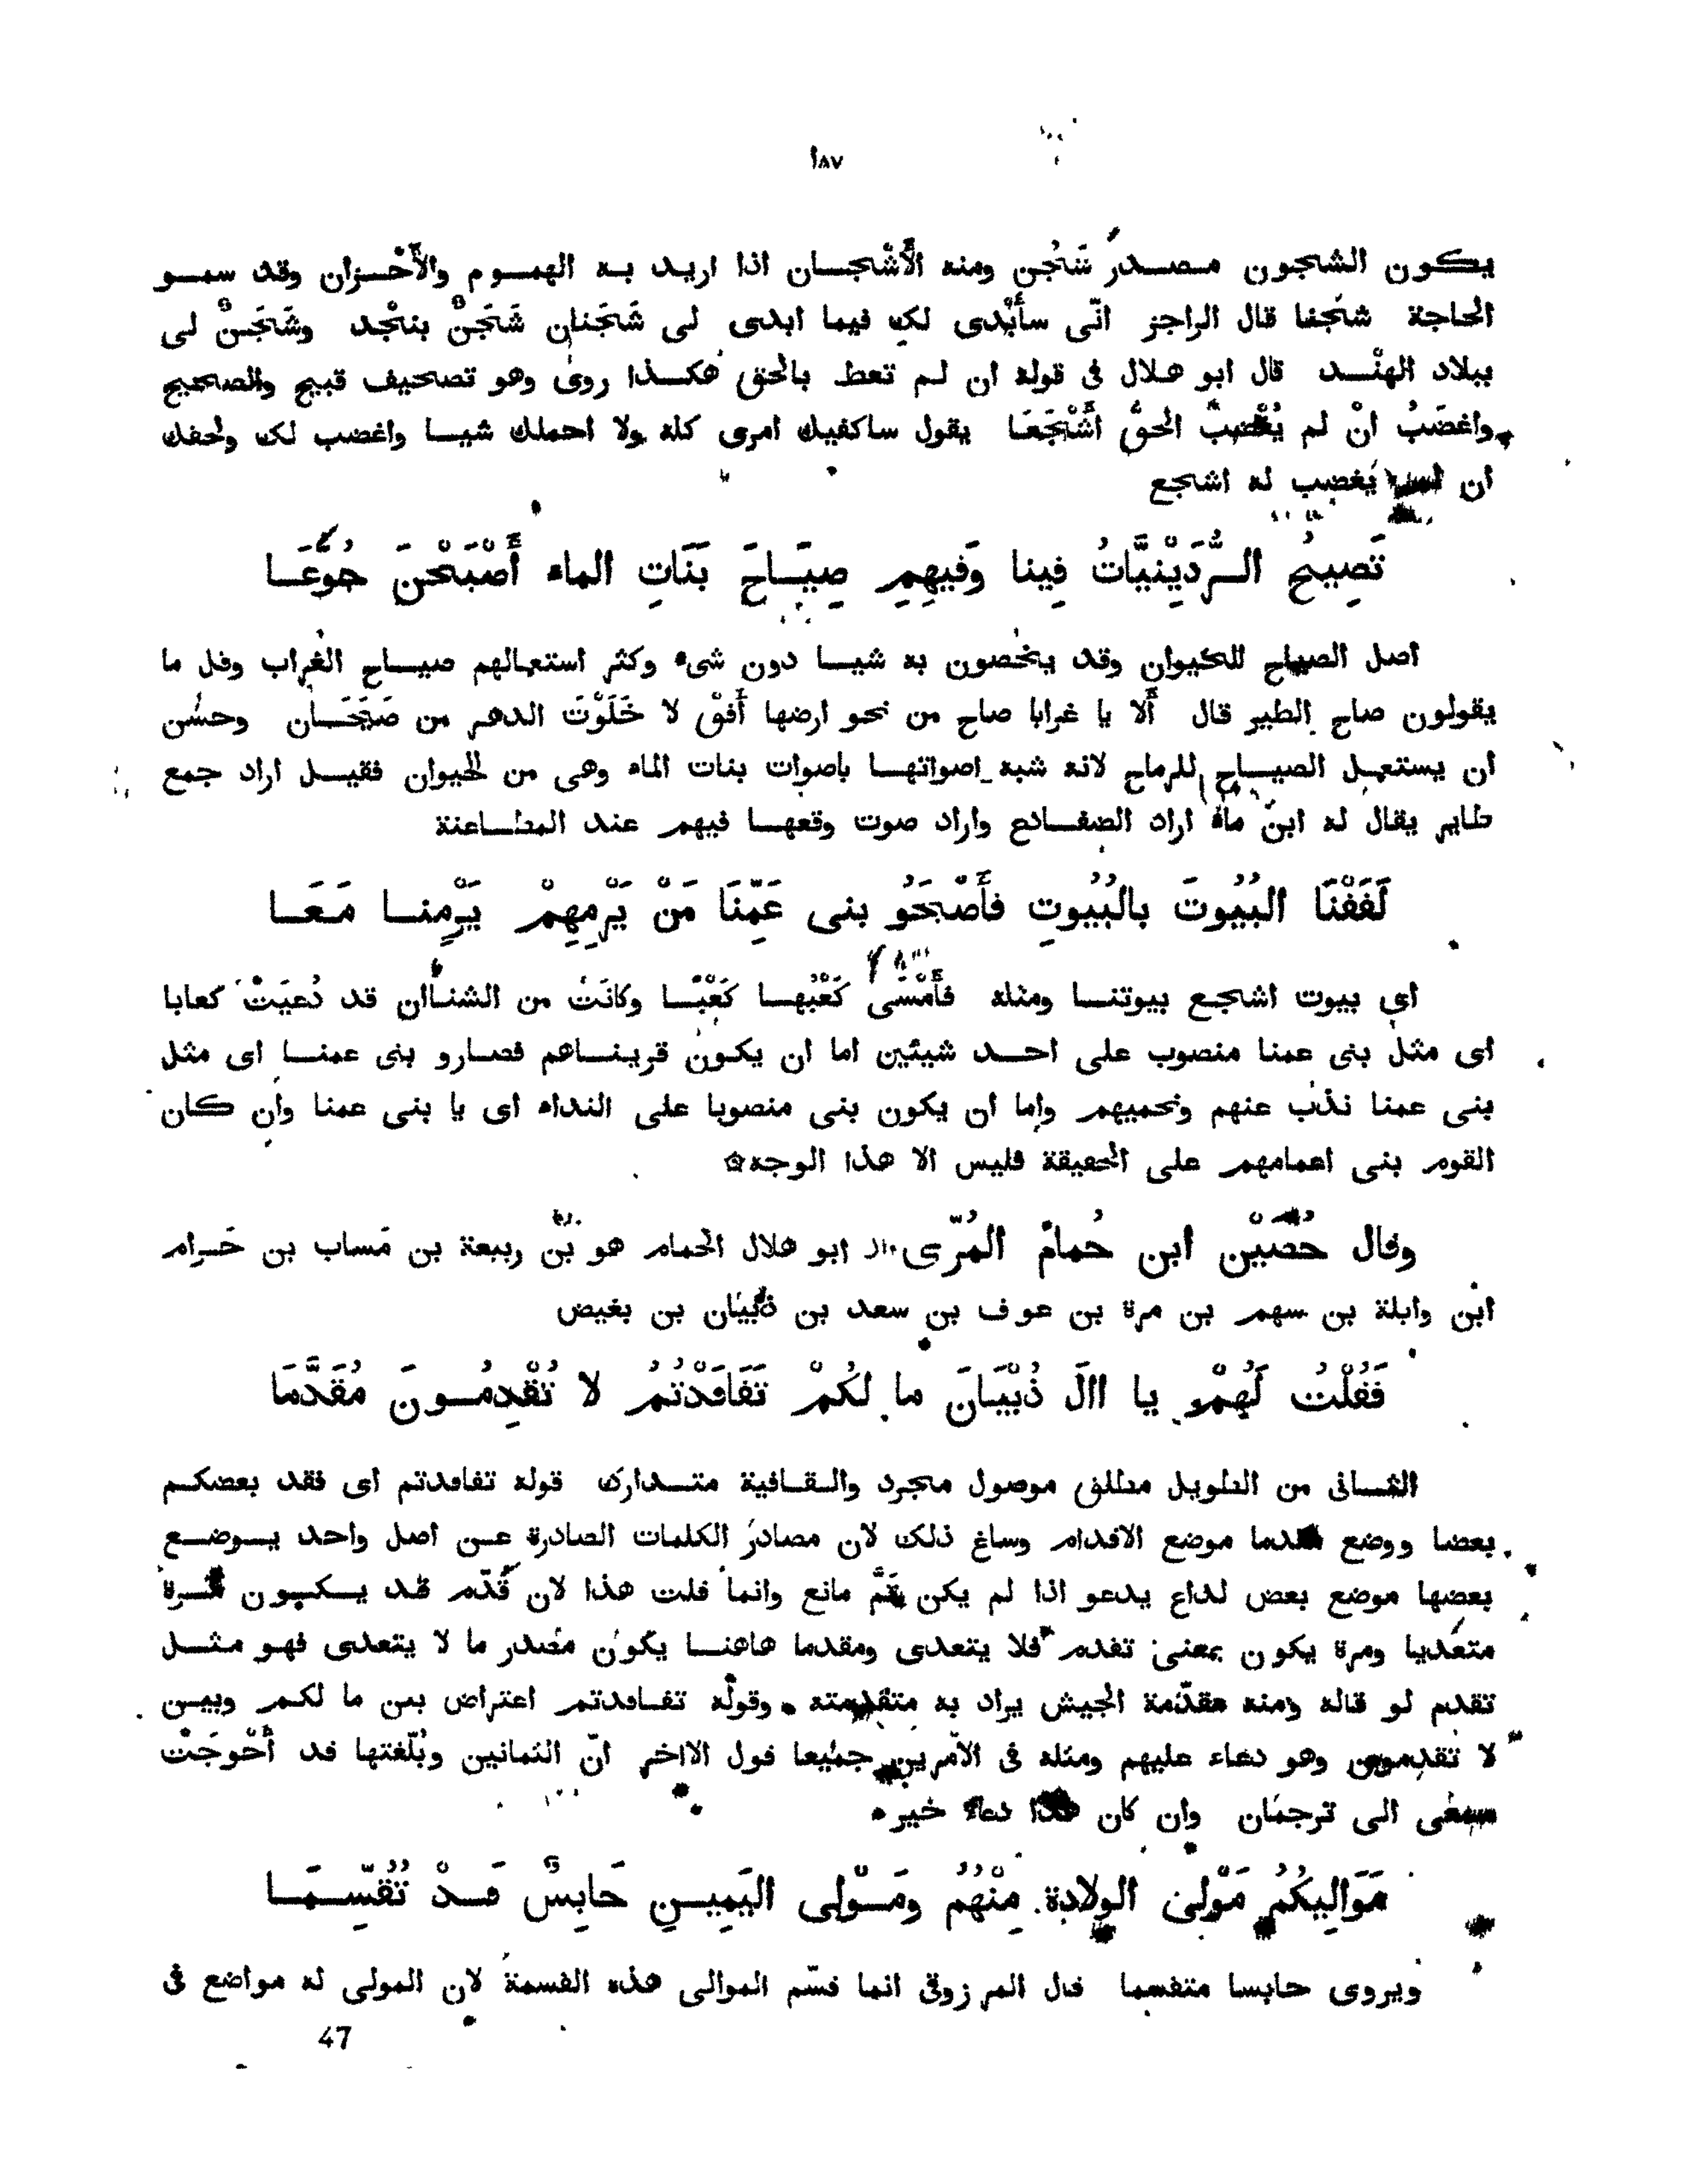 ١٨٧
يكون الشجون مصدر شَجُن ومنه الأَشْجان اذا اريد به الهموم والأَحْزان وقد سمو
الحاجة شجنا قال الراجز انّى سأُبْدى لك فيما ابدى لى شَجَنان شَجَنٌ بنَجْد وشَجَنٌ لى
ببلاد الهنْد قال ابو هلال فى قوله ان لم تعط بالحق هكذا روى وهو تصحيف قبيح والصحيح
واغضَبُ انْ لم يُغْضِبِ الحقُّ أَشْجَعَا يقول ساكفيك امرى كله ولا احملك شيا واغضب لك ولحقك
ان يغضب له اشجع
تَصِيحُ الرُّدَيْنِيَّاتُ فِينا وَفيهِمِ صِيَاحَ بَنَاتِ الماء أَصْبَحْنَ جُوَّعَا
اصل الصياح للحيوان وقد يخصون به شيا دون شىء وكثر استعمالهم صياح الغراب وقل ما
يقولون صاح الطير قال أَلا يا غرابا صاح من نحو ارضها أَفِقْ لا خَلَوْتَ الدهر من صَيَحَان وحسُن
ان يستعمل الصياح للرماح لانه شبه اصواتها باصوات بنات الماء وهى من الحيوان فقيل اراد جمع
طاير يقال له ابن ماء اراد الضفادع واراد صوت وقعها فيهم عند المطاعنة
لَفَفْنَا البُيُوتَ بالبُيُوتِ فأَصْبَحُو بنى عَمِّنَا مَنْ يَرْمِهِمْ يَرْمِنا مَعَا
اى بيوت اشجع بيوتنا ومثله فأَمْسَى كَعْبُها كَعْبًا وكانَتْ من الشناان قد دُعيَتْ كعابا
اى مثل بنى عمنا منصوب على احد شيئين اما ان يكون قريناهم فصارو بنى عمنا اى مثل
بنى عمنا نذبّ عنهم ونحميهم واما ان يكون بنى منصوبا على النداء اى يا بنى عمنا وان كان
القوم بنى اعمامهم على الحقيقة فليس الا هذا الوجه
وقال حُصَيْن ابن حُمامِ المُرّى ابو هلال الحمام هو بْن ربيعة بن مَساب بن حَرام
ابن وابلة بن سهم بن مرة بن عوف بن سعد بن ذُبْيَان بن بغيض
فَقُلْتُ لَهُمْ يا االَ ذُبْيَانَ ما لكُمْ تَفَاقَدْتُمُ لا تُقْدِمُونَ مُقَدَّمَا
الثانى من الطويل مطلق موصول مجرد والقافية متدارك قوله تفاقدتم اى فقد بعضكم
بعضا ووضع مقدما موضع الاقدام وساغ ذلك لان مصادر الكلمات الصادرة عن اصل واحد يوضع
بعضها موضع بعض لداع يدعو اذا لم يكن ثَمَّ مانع وانما قلت هذا لان قُدّم قد يكون مرة
متعديا ومرة يكون بمعنى تقدم فلا يتعدى ومقدما هاهنا يكون مصدر ما لا يتعدى فهو مثل
تقدم لو قاله ومنه مقدّمة الجيش يراد به متقدمته وقوله تفاقدتم اعتراض بين ما لكم وبين
لا تقدمون وهو دعاء عليهم ومثله فى الأمرين جميعا قول الااخر انّ الثمانين وبُلّغتها قد أَحْوجَتْ
سمعى الى ترجمان وان كان هذا دعاء خير
مَوَالِيكُمُ مَوْلى الولادة مِنْهُمُ ومَوْلى اليَمِينِ حَابِسٌ قَدْ تُقُسِّمَا
ويروى حابسا متقسما قال المرزوقى انما قسّم الموالى هذه القسمة لان المولى له مواضع فى
47